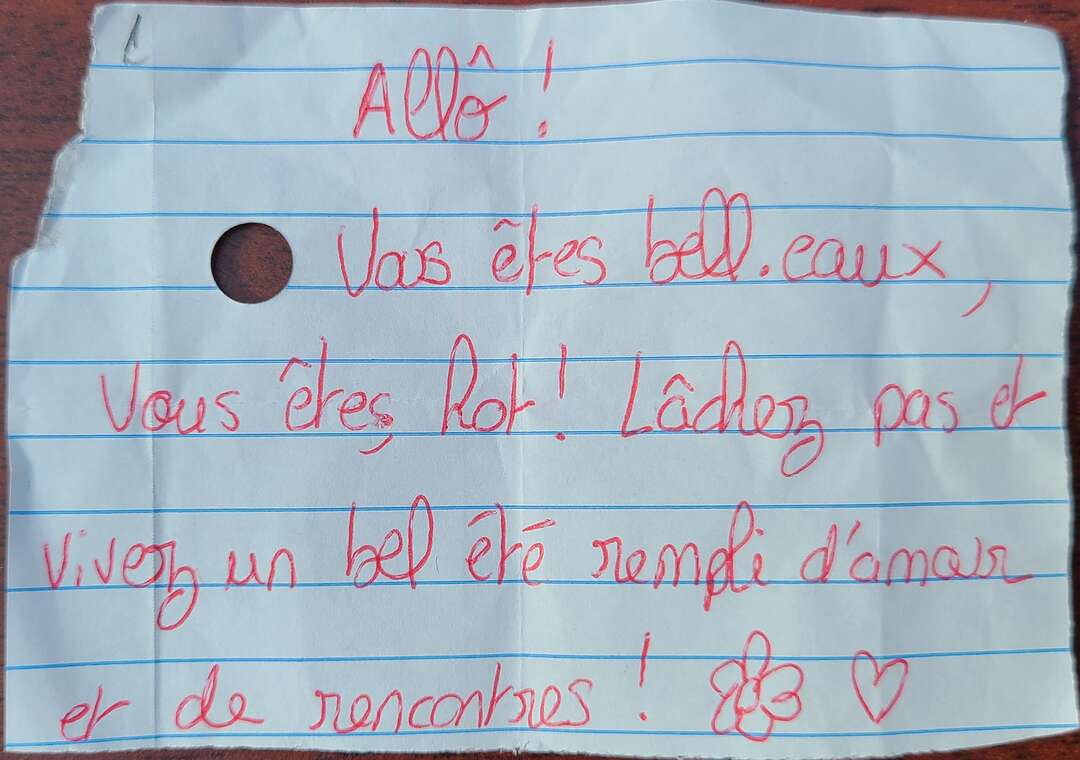 Allô!
Vous êtes bell.eaux,
vous êtes hot! Lâchez pas et
vivez un bel été rempli d'amour
et de rencontres!